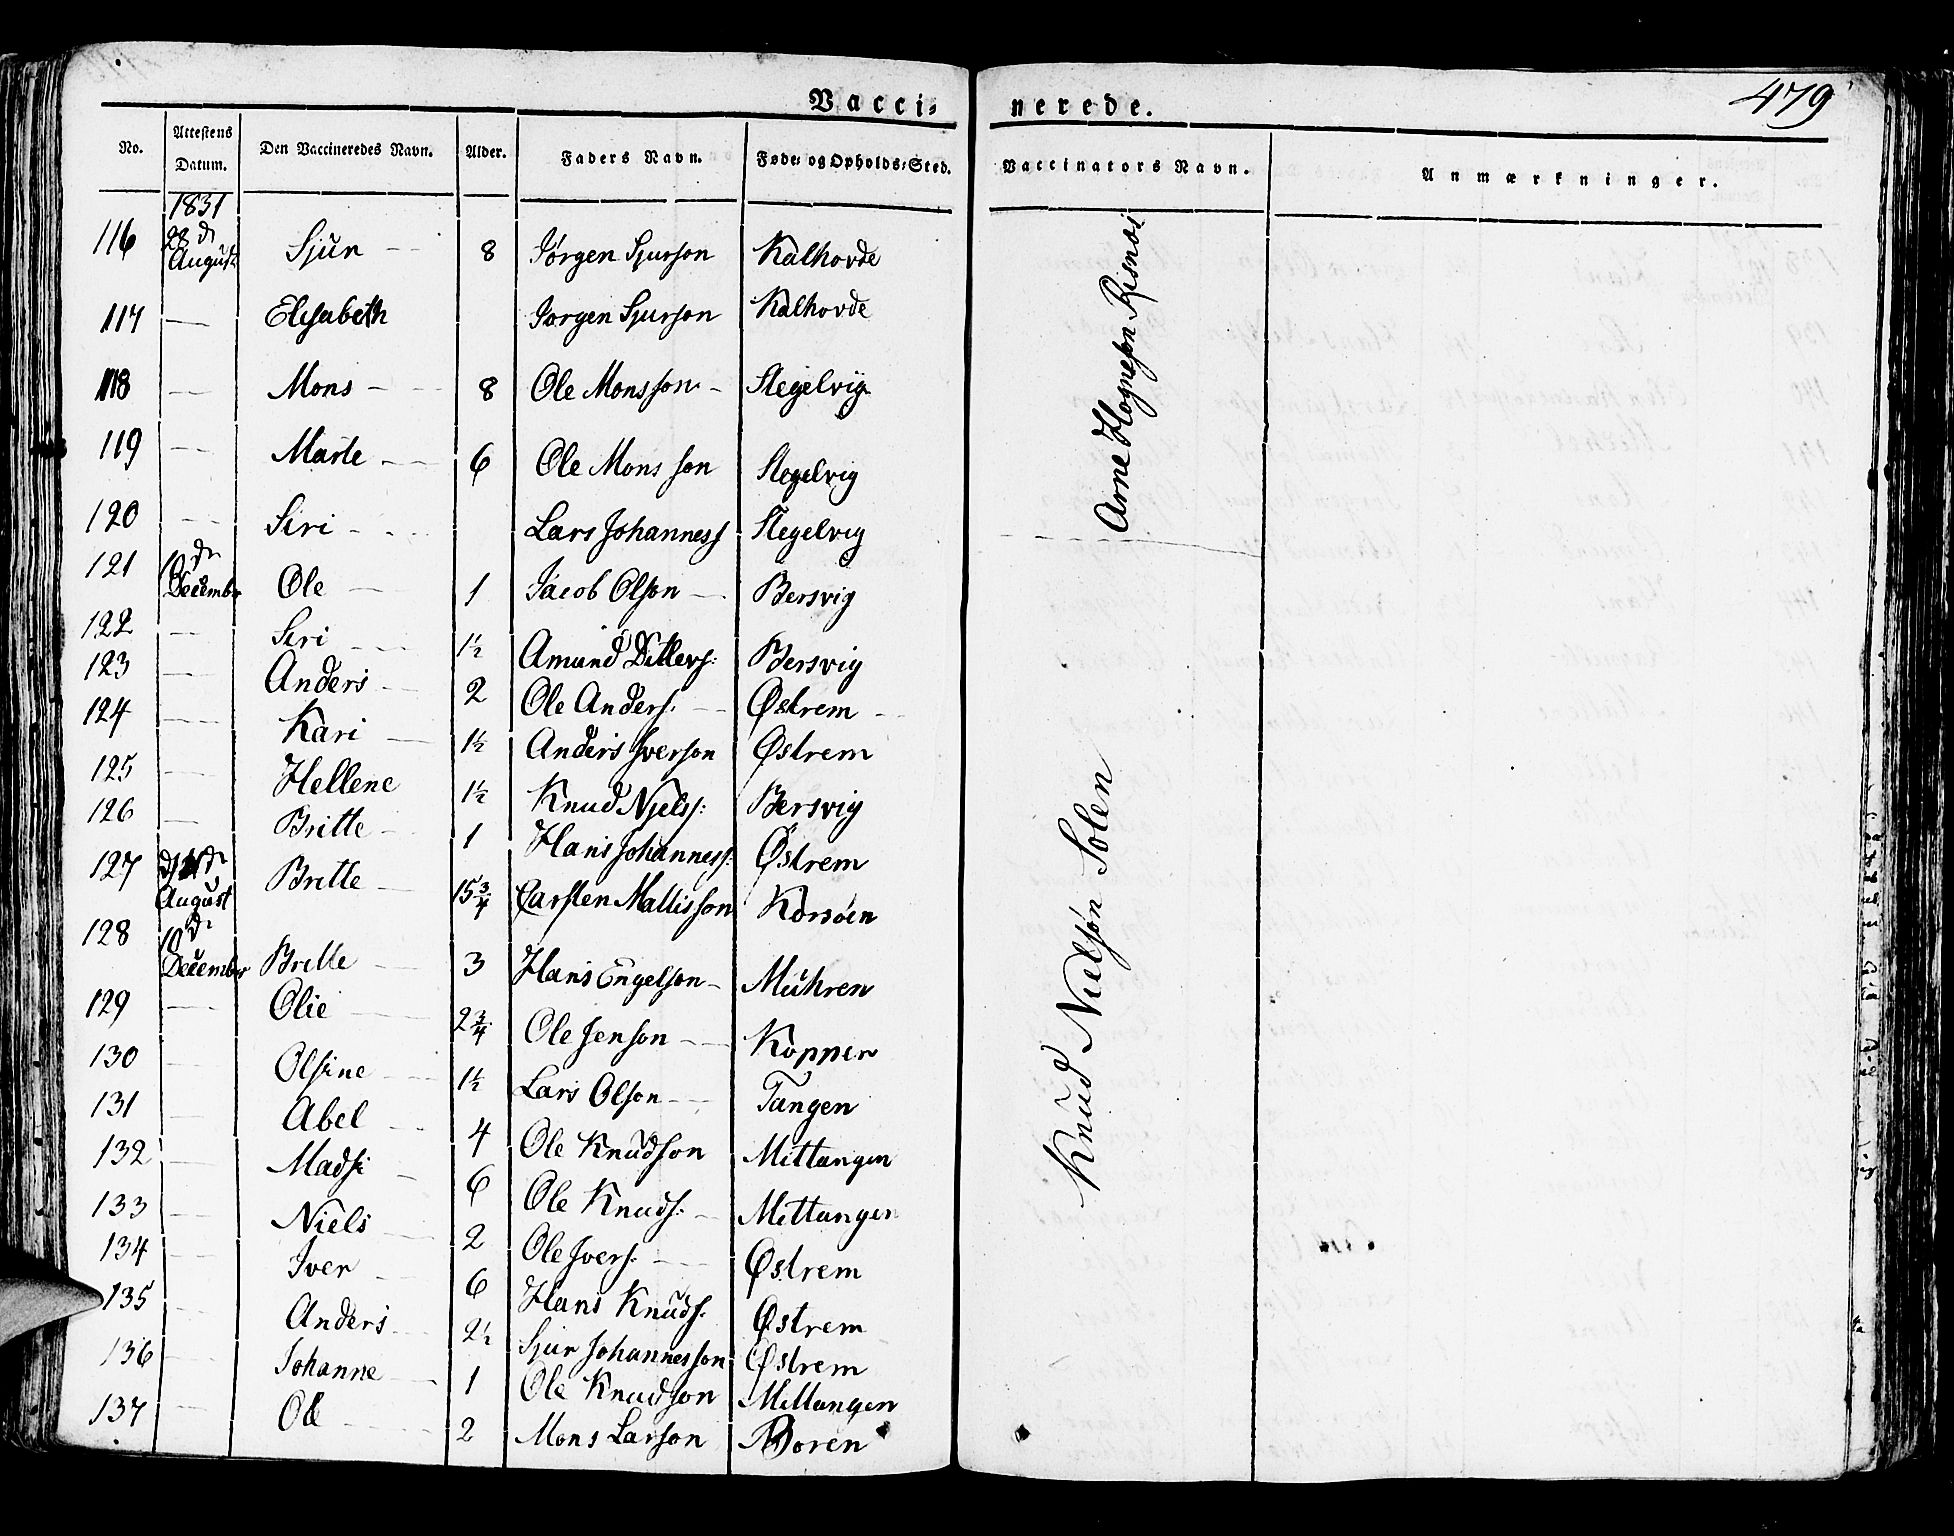 479
Vacci= nerede.
No. Attestens Datum. Den Vaccineredes Navn. Alder. Faders Navn. Føde- og Opholds-Sted. Vaccinators Navn. Anmærkninger.
1831
116 28 dr August Sjur 8 Jørgen Sjurson Kalhovde
117 — Elisabeth Jørgen Sjurson Kalhovde
118 — Mons 8 Ole Monsson Stegelvig
119 — Marte 6 Ole Monsson Stegelvig
120 — Siri Lars Johanness Stegelvig
Arne Hogneson Risnæs
121 10 dr December Ole 1 Jacob Olson Bersvig
122 — Siri 1½ Amund Ditlevs: Bersvig
123 — Anders 2 Ole Anders: Østrem
124 — Kari 1½ Anders Iverson Østrem
125 — Hellene 1½ Knud Njelss: Bersvig
126 — Britte 1 Hans Johanness: Østrem
127 August Britte 15¾ Carsten Mattisson Korsøen
128 10 dr December Britte 3 Hans Engelson Muhren
129 — Olie 2¾ Ole Jenson Kopper
130 — Olsine 1½ Lars Olson Tangen
131 — Abel 4 Ole Knudson Mittangen
132 — Madsi 6 Ole Knuds: Mittangen
133 — Niels 2 Ole Ivers: Østrem
134 — Iver 6 Hans Knuds: Østrem
135 — Anders 2½ Sjur Johannesson Østrem
136 — Johanne 1 Ole Knudson Mittangen
137 — Ole 2 Mons Larson Boren
Knud Nielson Solen